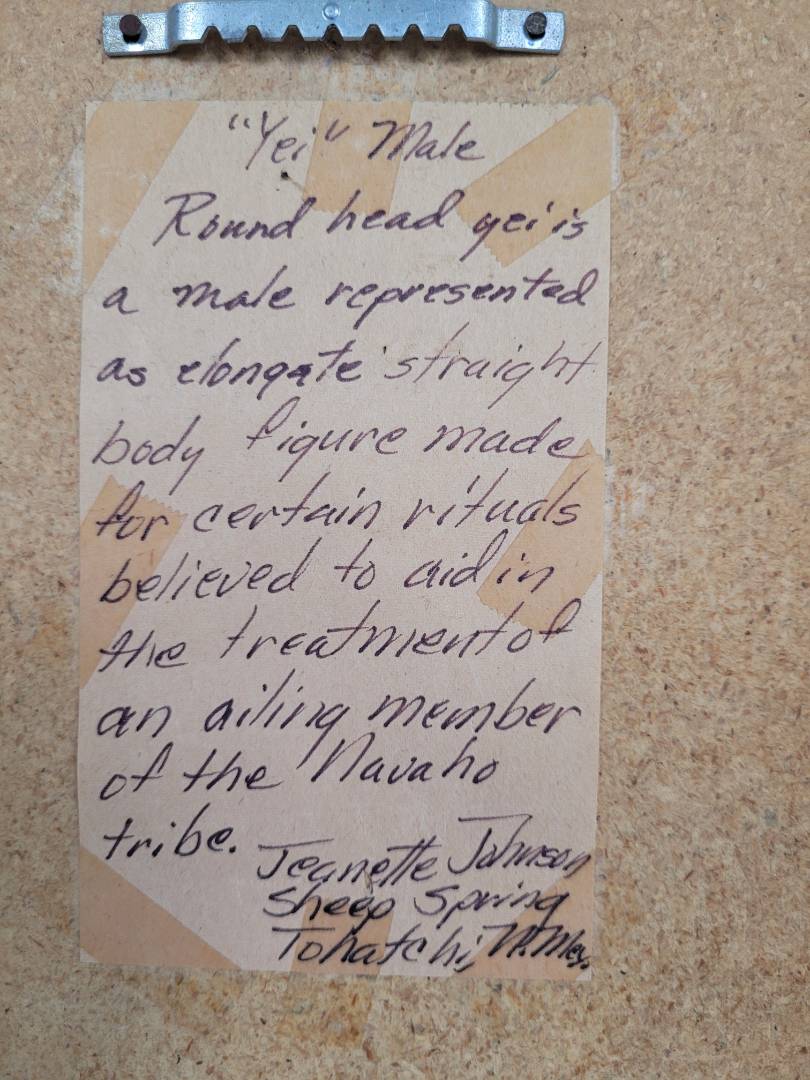 "Yei" Male
Round head yei is
a male represented
as elongate straight
body figure made
for certain rituals
believed to aid in
the treatment of
an ailing member
of the Navaho
tribe.
Jeanette Johnson
Sheep Spring
Tohatchi, N. Mex.